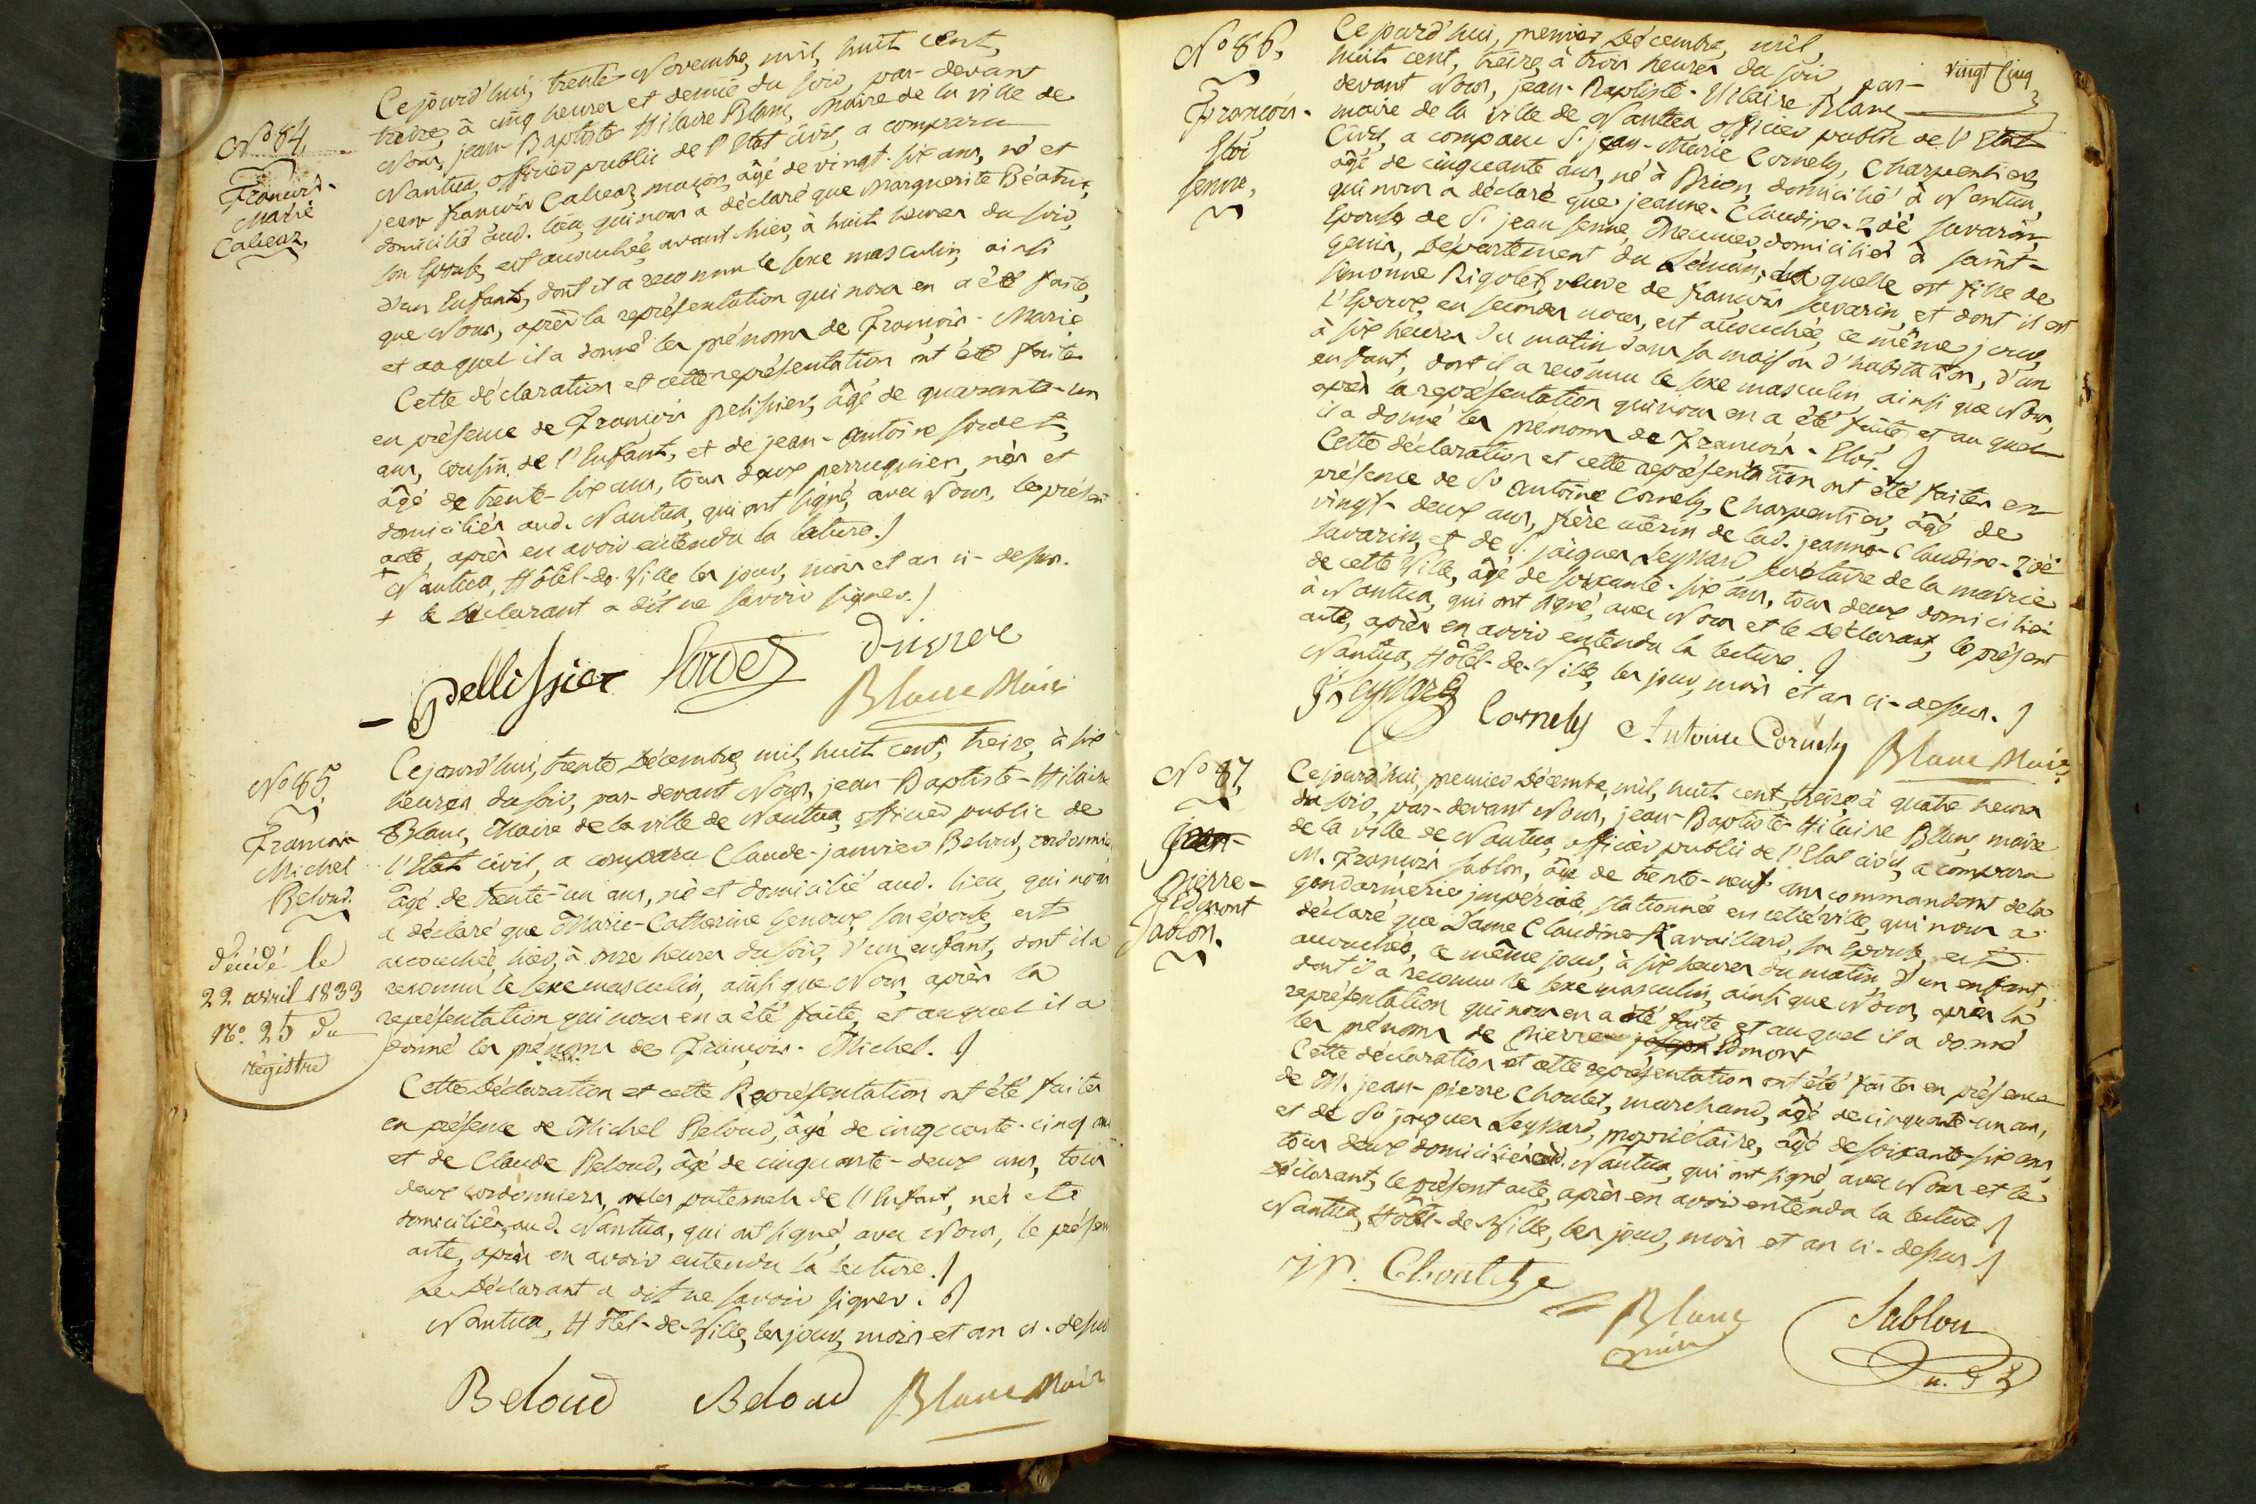 N.º 84,
François-
Marie
Cabeaz,
Cejourd'hui, trente Novembre, mil, huit cent,
treize, à cinq heures et demie du soir, par-devant
Nous, jean-Baptiste Hilaire Blanc, Maire de la ville de
Nantua, officier public de l'Etat civil, a comparu
jean françois Cabeaz, maçon, âgé de vingt-six ans, né et
domicilié aud. lieu, qui nous a déclaré que Marguerite Béatrix,
son Epouse, est accouchée, avant hier, à huit heures du soir,
d'un Enfant, dont il a reconnu le sexe masculin, ainsi
que Nous, après la représentation qui nous en a été faite,
et auquel il a donné les prénoms de François-Marie
Cette déclaration et cette représentation ont été faites
en présence de François pelissier, âgé de quarante-un
ans, cousin de l'Enfant, et de jean-antoine sordet,
âgé de trente-six ans, tous deux perruquiers, nés et
domiciliés aud. Nantua, qui ont signé, avec Nous, le présent
acte, après en avoir entendu la lecture./
+ Nantua, Hôtel-de-Ville les jour, mois et an ci-dessus.
+ le Déclarant a dit ne savoir signer./
Pellissier Sordet
Blanc Maire
N.º 85,
François
Michel
Beloud.
décédé le
22 avril 1833
N.º 25 du
régistre
Cejourd'hui, trente Décembre, mil, huit cent, treize, à six
heures du soir, par-devant Nous, jean-Baptiste-Hilaire
Blanc, Maire de la ville de Nantua, officier public de
l'Etat civil, a comparu Claude-janvier Beloud, cordonnier
âgé de trente-un ans, né et domicilié aud. lieu, qui nous
a déclaré que Marie-Catherine Genoux, son épouse, est
accouchée, hier, à onze heures du soir, d'un enfant, dont il a
reconnu le sexe masculin, ainsi que Nous, après la
représentation qui nous en a été faite, et auquel il a
donné les prénoms de François-Michel./
Cette Déclaration et cette Représentation ont été faites
en présence de Michel Beloud, âgé de cinquante-cinq ans
et de Claude Beloud, âgé de cinquante-deux ans, tous
deux cordonniers, oncles paternels de l'Enfant, nés et
domiciliés aud. Nantua, qui ont signé, avec Nous, le présent
acte, après en avoir entendu la lecture./
Le Déclarant a dit ne savoir signer./
Nantua, Hôtel-de-Ville, les jour, mois et an ci-dessus
Beloud Beloud Blanc Maire
vingt cinq
N.º 86,
François-
Eloi
Senne,
Cejourd'hui, premier Décembre, mil,
huit cent, treize, à trois heures du soir, par-
devant Nous, jean-Baptiste-Hilaire Blanc
maire de la ville de Nantua officier public de l'Etat
Civil, a comparu S. jean-Marie Cornely, Charpentier,
âgé de cinquante ans, né à Brion, domicilié à Nantua,
qui nous a déclaré que jeanne-Claudine-Zoé savarin,
Epouse de S. jean senne, Meunier, domiciliés à saint-
genis, Département du Léman, la quelle est fille de
simonne Rigolet, veuve de françois savarin, et dont il est
l'Epoux, en secondes noces, est accouchée, ce même jour,
à six heures du matin dans sa maison d'habitation, d'un
enfant, dont il a reconnu le sexe masculin, ainsi que Nous,
après la représentation qui nous en a été faite, et au quel
il a donné les prénoms de François-Eloi./
Cette déclaration et cette représentation ont été faites en
présence de S. antoine Cornely, Charpentier, âgé de
vingt-deux ans, frère utérin de lad. jeanne-Claudine-Zoé
savarin, et de S. jacques Leyssard, secrétaire de la mairie
de cette Ville, âgé de soixante-six ans, tous deux domiciliés
à Nantua, qui ont signé, avec Nous et le Déclarant, le présent
acte, après en avoir entendu la lecture./
Nantua, Hôtel-de-Ville, les jour, mois et an ci-dessus./
Leyssard Cornely Antoine Cornely Blanc Maire
N.º 87,
Jean-
Pierre-
Edmont
Sablon.
Cejourd'hui, premier Décembre, mil, huit cent, treize, à quatre heures
du soir, par-devant Nous, jean-Baptiste-Hilaire Blanc, maire
de la ville de Nantua, officier public de l'Etat civil, a comparu
M. François sablon, âgé de trente-neuf ans commandant de la
gendarmerie impériale, stationnée en cette ville, qui nous a
déclaré que Dame Claudine Ravaillard, son Epouse, est
accouchée, ce même jour, à six heures du matin, d'un enfant,
dont il a reconnu le sexe masculin, ainsi que Nous, après la
représentation qui nous en a été faite, et auquel il a donné
les prénoms de Pierre joseph Edmont
Cette déclaration et cette représentation ont été faites en présence
de M. jean-pierre Choulet, marchand, âgé de cinquante-un ans,
et de S. jacques Leyssard, propriétaire, âgé de soixante-six ans,
tous deux domiciliés aud. Nantua, qui ont signé, avec Nous et le
Déclarant, le présent acte, après en avoir entendu la lecture./
Nantua, Hôtel-de-Ville, les jour, mois et an ci-dessus./
jp. Choulet
Blanc
maire
Sablon